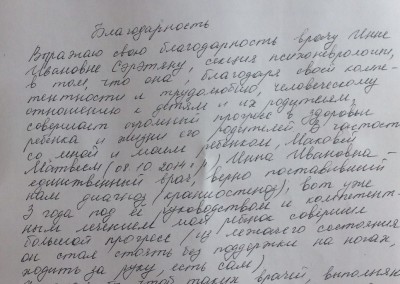 Благодарность
Выражаю свою благодарность врачу Инне
Ивановне Сэрэтяну, секция психоневрологии,
в том, что она, благодаря своей компе-
тентности и трудолюбию, человеческому
отношению к детям и их родителям,
совершает огромный прогресс в здоровьи
ребёнка и жизни его родителей. В частности
со мной и моим ребёнком, Маковей
Матвеем (08.10.2014 г.р), Инна Ивановна -
единственный врач, верно поставивший
нам диагноз (краниостеноз), вот уже
3 года под её руководством и компетент-
ным лечением мой ребёнок совершил
большой прогресс (из лежачего состояния
он стал стоять без поддержки на ногах,
ходить за руку, есть сам)
таких врачей,